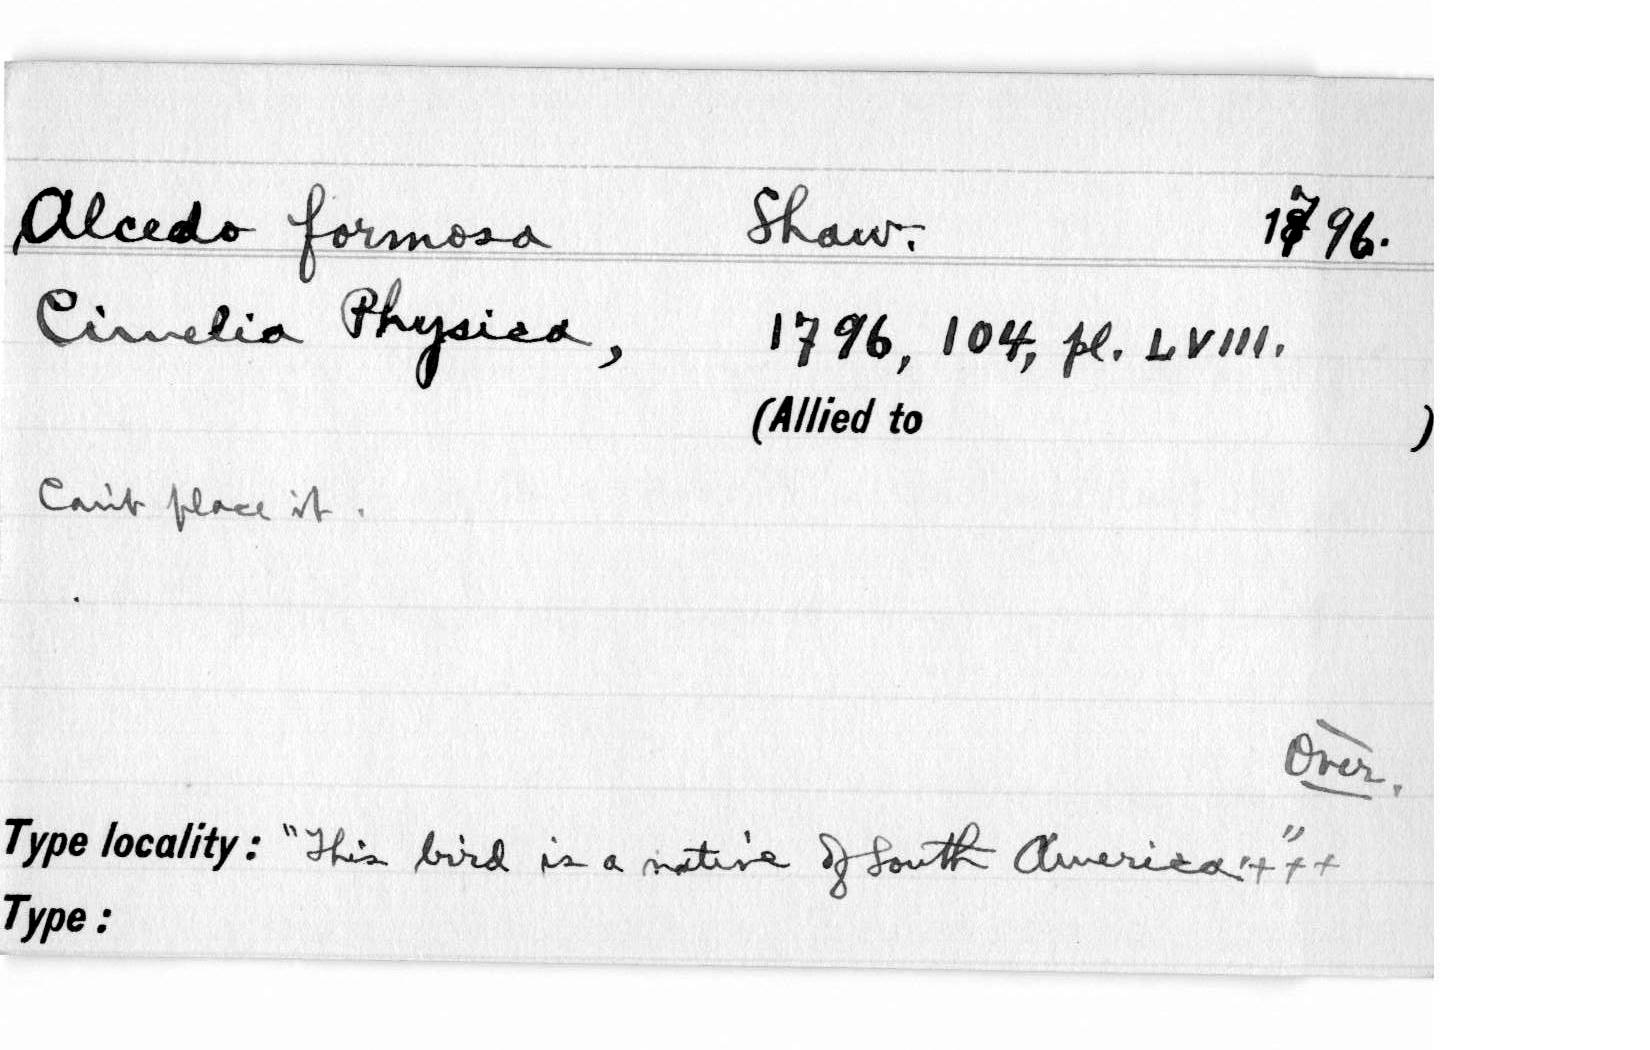 Alcedo formosa Shaw. 1796.
Cimelia Physica, 1796, 104, pl. LVIII.
(Allied to )
Can't place it.
Over.
Type locality: "This bird is a native of South America"+++
Type: